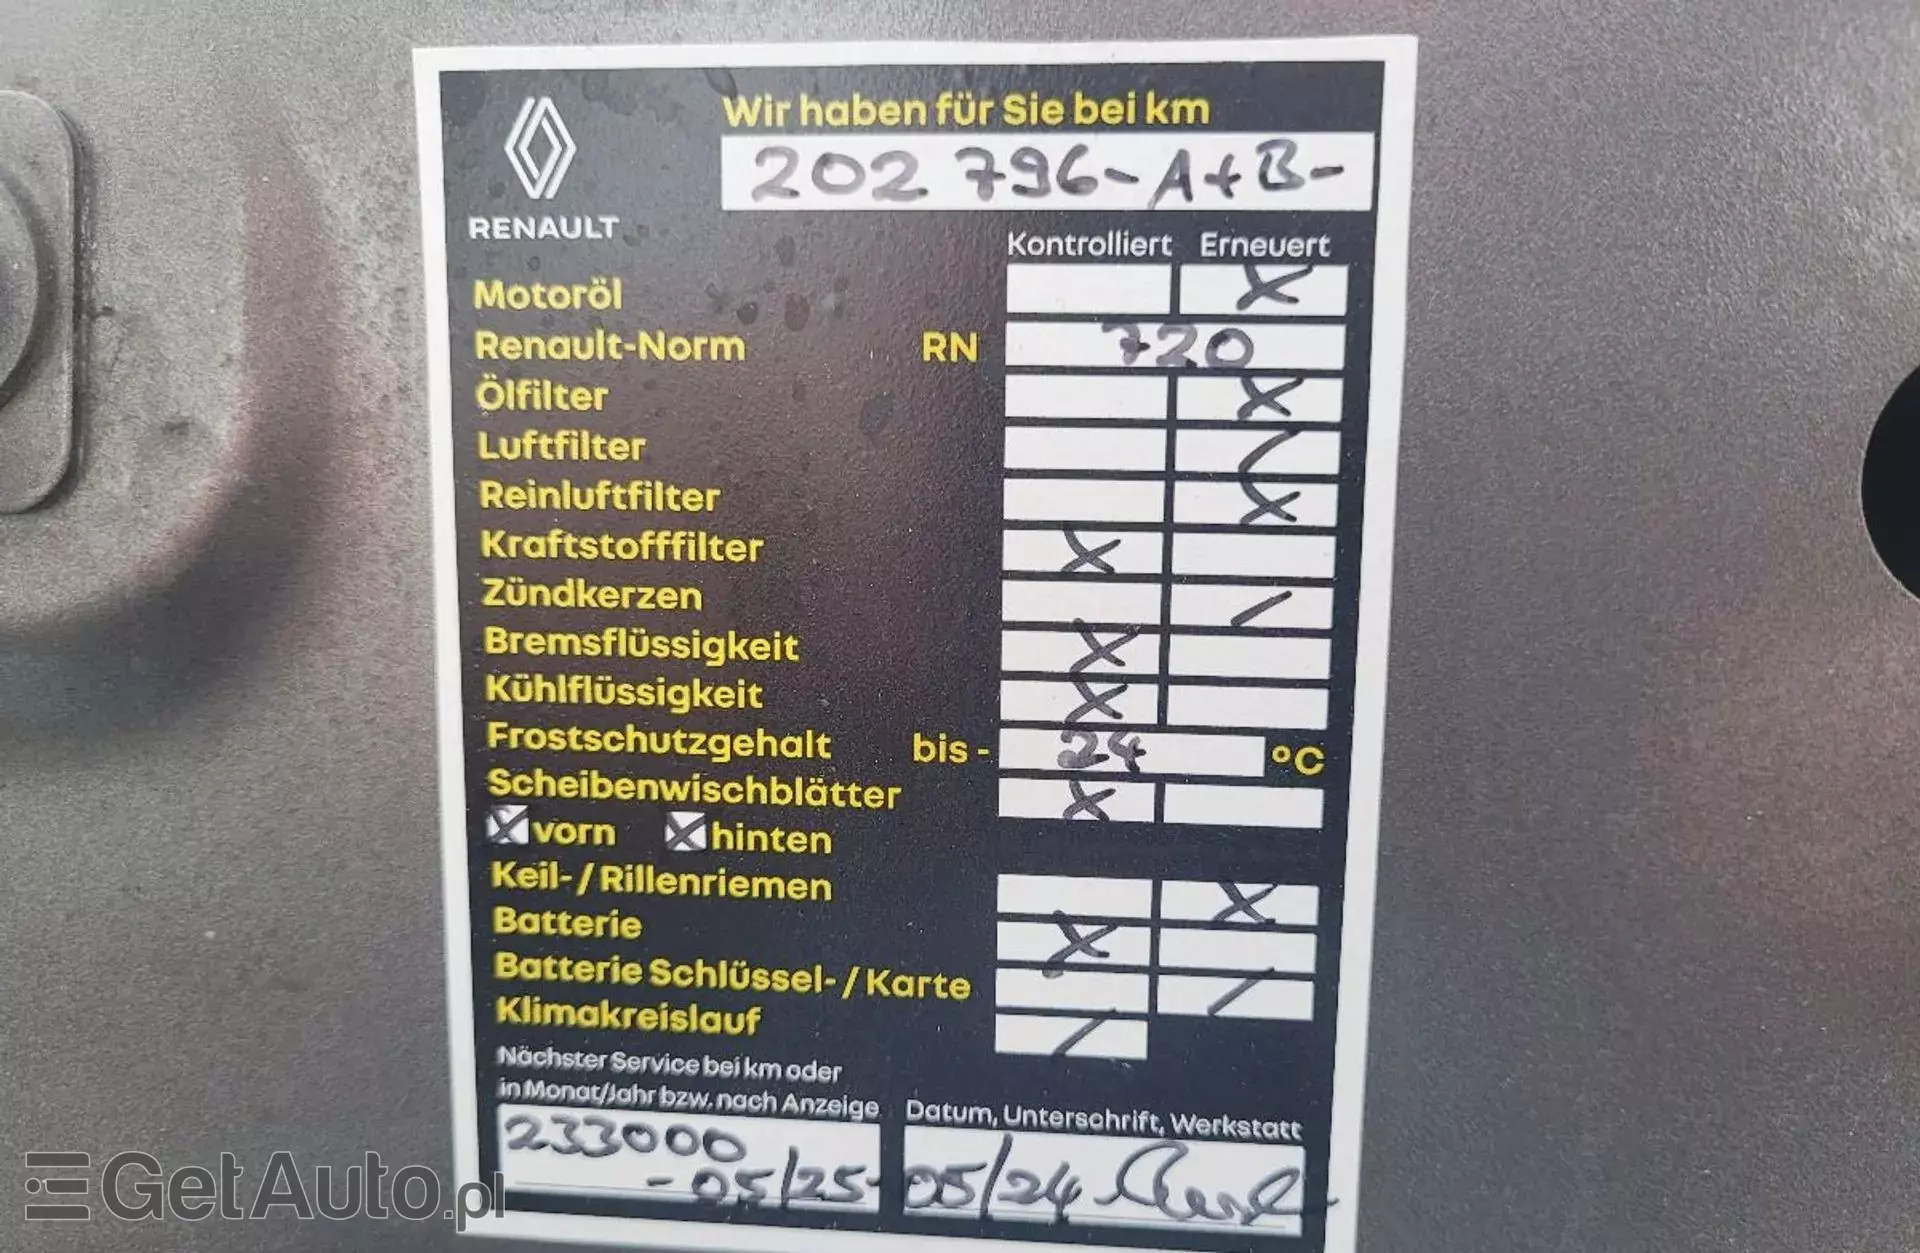 Wir haben für Sie bei km
202 796 - A+B -
RENAULT
Kontrolliert Erneuert
Motoröl X
Renault-Norm RN 720
Ölfilter X
Luftfilter /
Reinluftfilter X
Kraftstofffilter X
Zündkerzen /
Bremsflüssigkeit X
Kühlflüssigkeit X
Frostschutzgehalt bis - 24 °C
Scheibenwischblätter X
X vorn X hinten
Keil- / Rillenriemen X
Batterie X
Batterie Schlüssel- / Karte /
Klimakreislauf /
Nächster Service bei km oder
in Monat/Jahr bzw. nach Anzeige
Datum, Unterschrift, Werkstatt
233000
- 05/25 -
05/24
GetAuto.pl